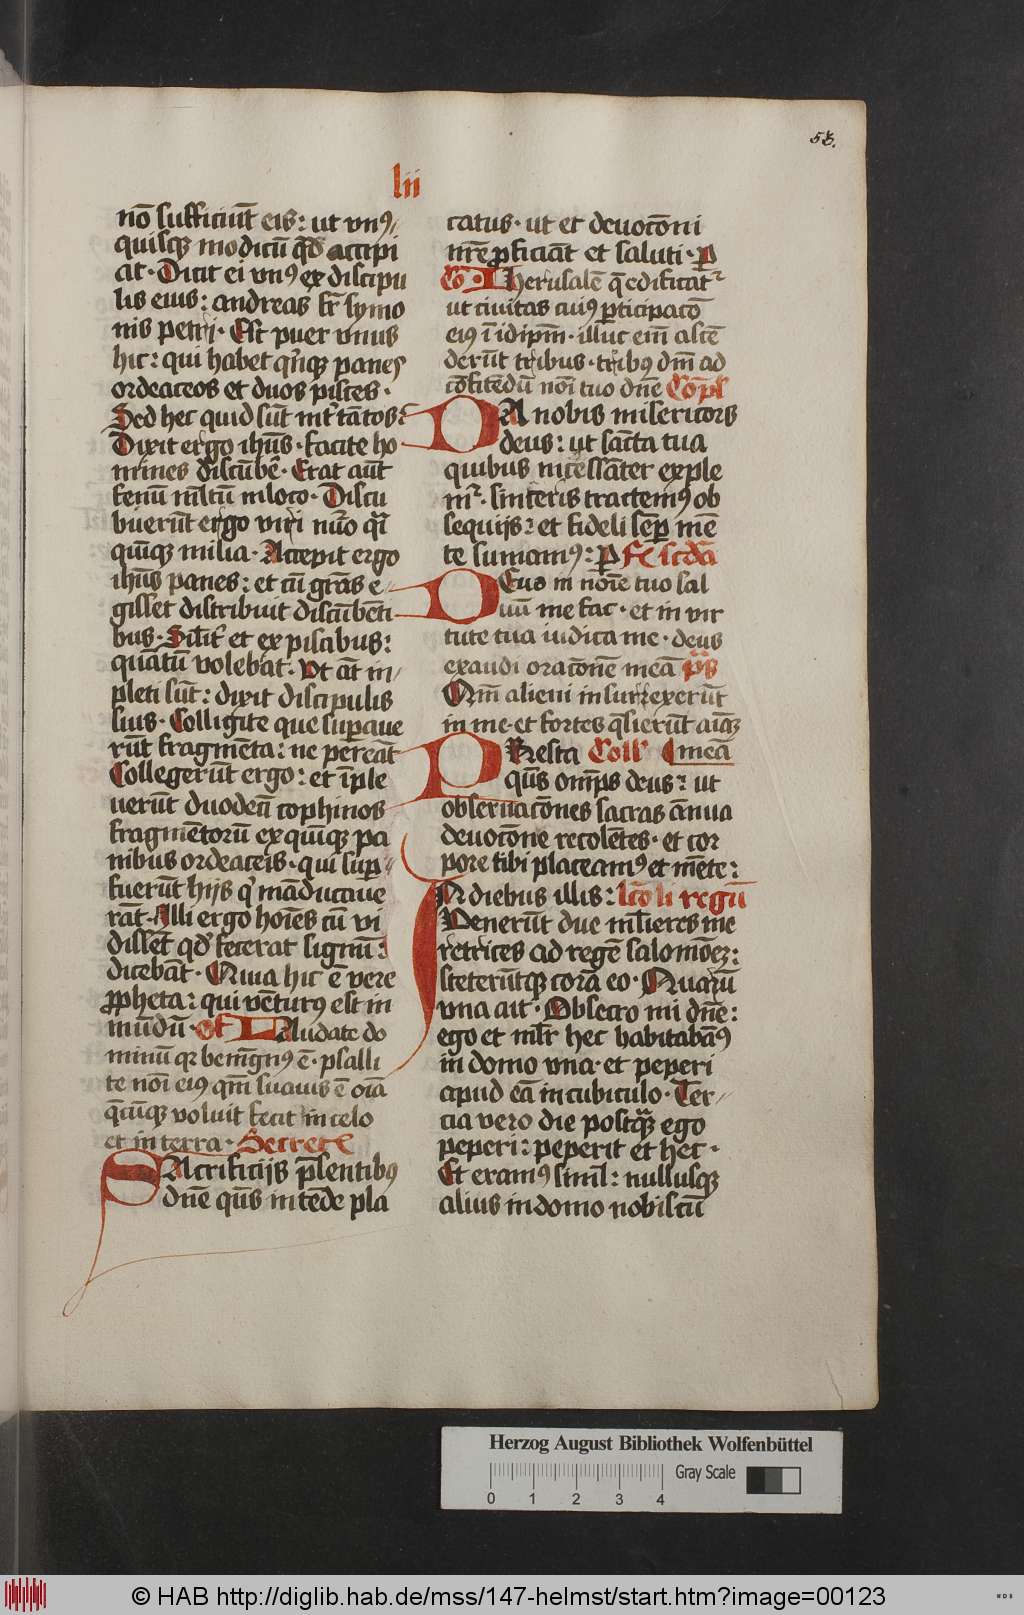 58.
lii
nō sufficiūt eis: ut vnꝰ
quisqꝫ modicū qd̄ accipi
at· Dicit ei vnꝰ ex discipu
lis eius: andreas fr̄ symo
nis petri· Est puer vnus
hic: qui habet qͥnqꝫ panes
ordeaceos et duos pisces·
Sed hec quid sūt int̓ tātos
Dixit ergo ihūs· facite ho
mines discūbē· Erat aūt
fenū ml̄tū in loco· Discu
buerūt ergo viri nūo qͣi
quīqꝫ milia· Accepit ergo
ihūs panes: et cū grās e
gisset distribuit discūbenti
bus· Sil̄it̓ et ex piscibus:
quātū volebāt· Vt āt in
pleti sūt: dixit discipulis
suis· Colligite que suꝑaue
rūt fragmēta: ne pereāt
Collegerūt ergo: et īple
uerūt duodeū cophinos
fragmētorū ex quīqꝫ pa
nibus ordeaceis· qui suꝑ
fuerūt hijs qͥ māducaue
rāt· Illi ergo hoīes cū vi
dissēt qd̓ fecerat signū:
dicebāt· Quia hic ē vere
ꝓpheta: qui vēturꝰ est in
mūdū· Of Laudate do
minū qꝛ benignꝰ ē· psalli
te noī eiꝰ qm̄ suauis ē oīa
q̄cūqꝫ voluit fecit in celo
et in terra· Secret
Sacrificijs p̄sentibꝰ
dn̄e qūs intēde pla
catus· ut et deuotōni
nr̄e ꝓficiāt et saluti· P
Co· Iherusalē q̄ edificat᷑
ut ciuitas cuiꝰ ꝑticipacō
eiꝰ ī idipm̄· illuc em̄ ascē
derūt tribus· tribꝰ dn̄i ad
cōfitēdū noī tuo dn̄e Cōpl
Da nobis misericors
deus: ut sācta tua
quibus incessāter exple
m᷑· sinceris tractemꝰ ob
sequijs: et fideli sēꝑ mē
te sumamꝰ: P Fr̄ scd̄a
Deus in noīe tuo sal
uū me fac· et in vir
tute tua iudica me· deus
exaudi oracōnem meā p̄s
Qm̄ alieni insurrexerūt
in me· et fortes q̄sierūt aīaꝫ
Presta Coll meā
qūs omp̄s deus: ut
obseruacōnes sacras ānua
deuotōne recolētes· et cor
pore tibi placeamꝰ et mēte:
In diebus illis: lc̄o li regū
Venerūt due ml̄ieres me
retrices ad regē salomōeꝫ:
steterūtqꝫ corā eo· Quarū
vna ait· Obsecro mi dn̄e:
ego et ml̄r hec habitabāꝰ
in domo vna· et peperi
apud eā in cubiculo· Ter
cia vero die postqͣꝫ ego
peperi: peperit et hec·
Et eramꝰ simĺ: nullusqꝫ
alius in domo nobiscū
Herzog August Bibliothek Wolfenbüttel
Gray Scale
0 1 2 3 4
© HAB http://diglib.hab.de/mss/147-helmst/start.htm?image=00123